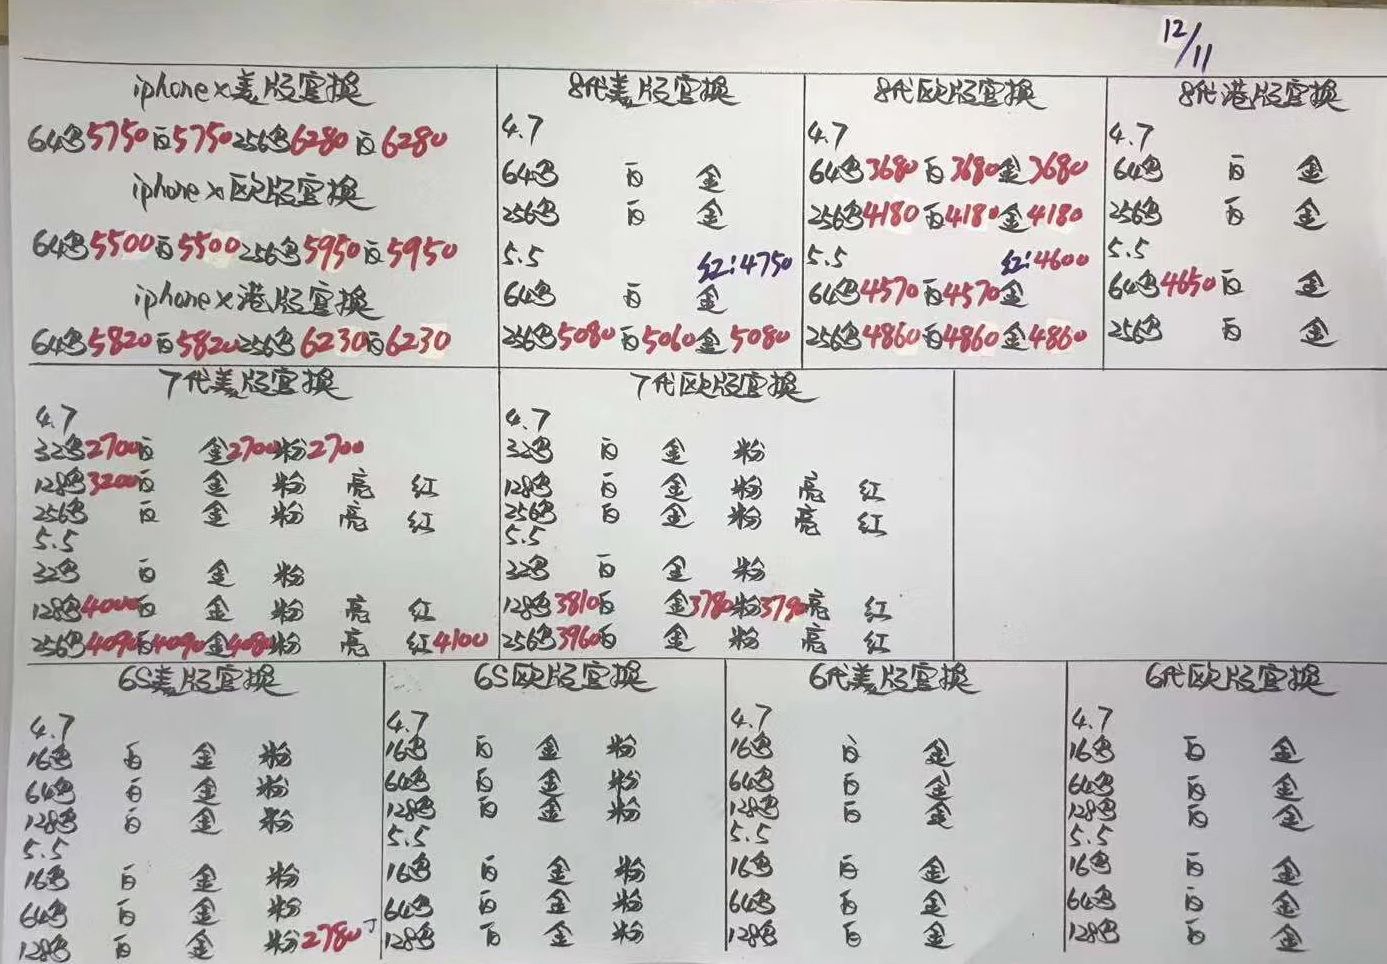 12/11
iphone x美版官换
64黑5750白5750256黑6280白6280
iphone x欧版官换
64黑5500白5500256黑5950白5950
iphone x港版官换
64黑5820白5820256黑6230白6230
8代美版官换
4.7
64黑 白 金
256黑 白 金
5.5 红:4750
64黑 白 金
256黑5080白5060金5080
8代欧版官换
4.7
64黑3680白3680金3680
256黑4180白4180金4180
5.5 红:4600
64黑4570白4570金
256黑4860白4860金4860
8代港版官换
4.7
64黑 白 金
256黑 白 金
5.5
64黑4650白 金
256黑 白 金
7代美版官换
4.7
32黑2700白 金2700粉2700
128黑3200白 金 粉 亮 红
256黑 白 金 粉 亮 红
5.5
32黑 白 金 粉
128黑4000白 金 粉 亮 红
256黑4090白4090金4080粉 亮 红4100
7代欧版官换
4.7
32黑 白 金 粉
128黑 白 金 粉 亮 红
256黑 白 金 粉 亮 红
5.5
32黑 白 金 粉
128黑3810白 金3780粉3790亮 红
256黑3960白 金 粉 亮 红
6S美版官换
4.7
16黑 白 金 粉
64黑 白 金 粉
128黑 白 金 粉
5.5
16黑 白 金 粉
64黑 白 金 粉
128黑 白 金 粉2780
6S欧版官换
4.7
16黑 白 金 粉
64黑 白 金 粉
128黑 白 金 粉
5.5
16黑 白 金 粉
64黑 白 金 粉
128黑 白 金 粉
6代美版官换
4.7
16黑 白 金
64黑 白 金
128黑 白 金
5.5
16黑 白 金
64黑 白 金
128黑 白 金
6代欧版官换
4.7
16黑 白 金
64黑 白 金
128黑 白 金
5.5
16黑 白 金
64黑 白 金
128黑 白 金